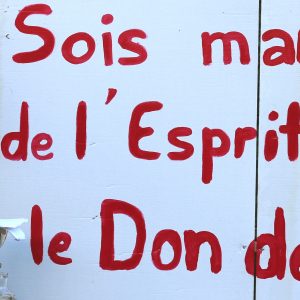 Sois ma
de l'Esprit
le Don de